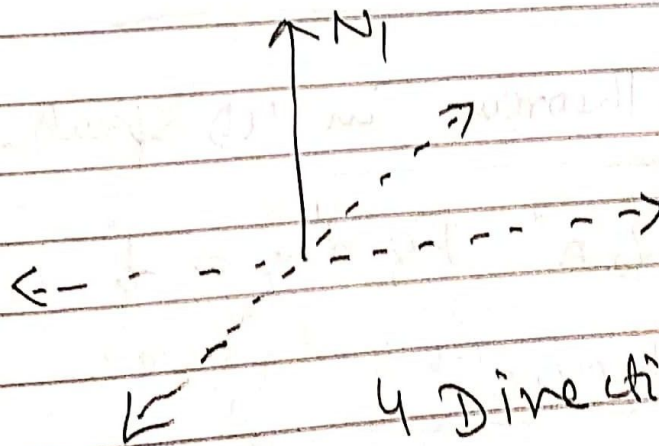 N1
4 Directi